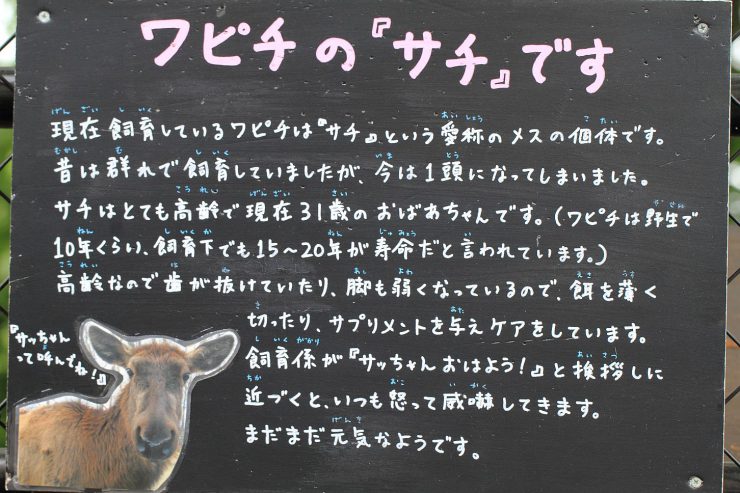 ワピチの『サチ』です
現在飼育しているワピチは『サチ』という愛称のメスの個体です。
昔は群れで飼育していましたが、今は1頭になってしまいました。
サチはとても高齢で現在31歳のおばあちゃんです。(ワピチは野生で
10年くらい、飼育下でも15〜20年が寿命だと言われています。)
高齢なので歯が抜けていたり、脚も弱くなっているので、餌を薄く
切ったり、サプリメントを与えケアをしています。
飼育係が『サッちゃんおはよう!』と挨拶しに
近づくと、いつも怒って威嚇してきます。
まだまだ元気なようです。
『サッちゃん
って呼んでね!』